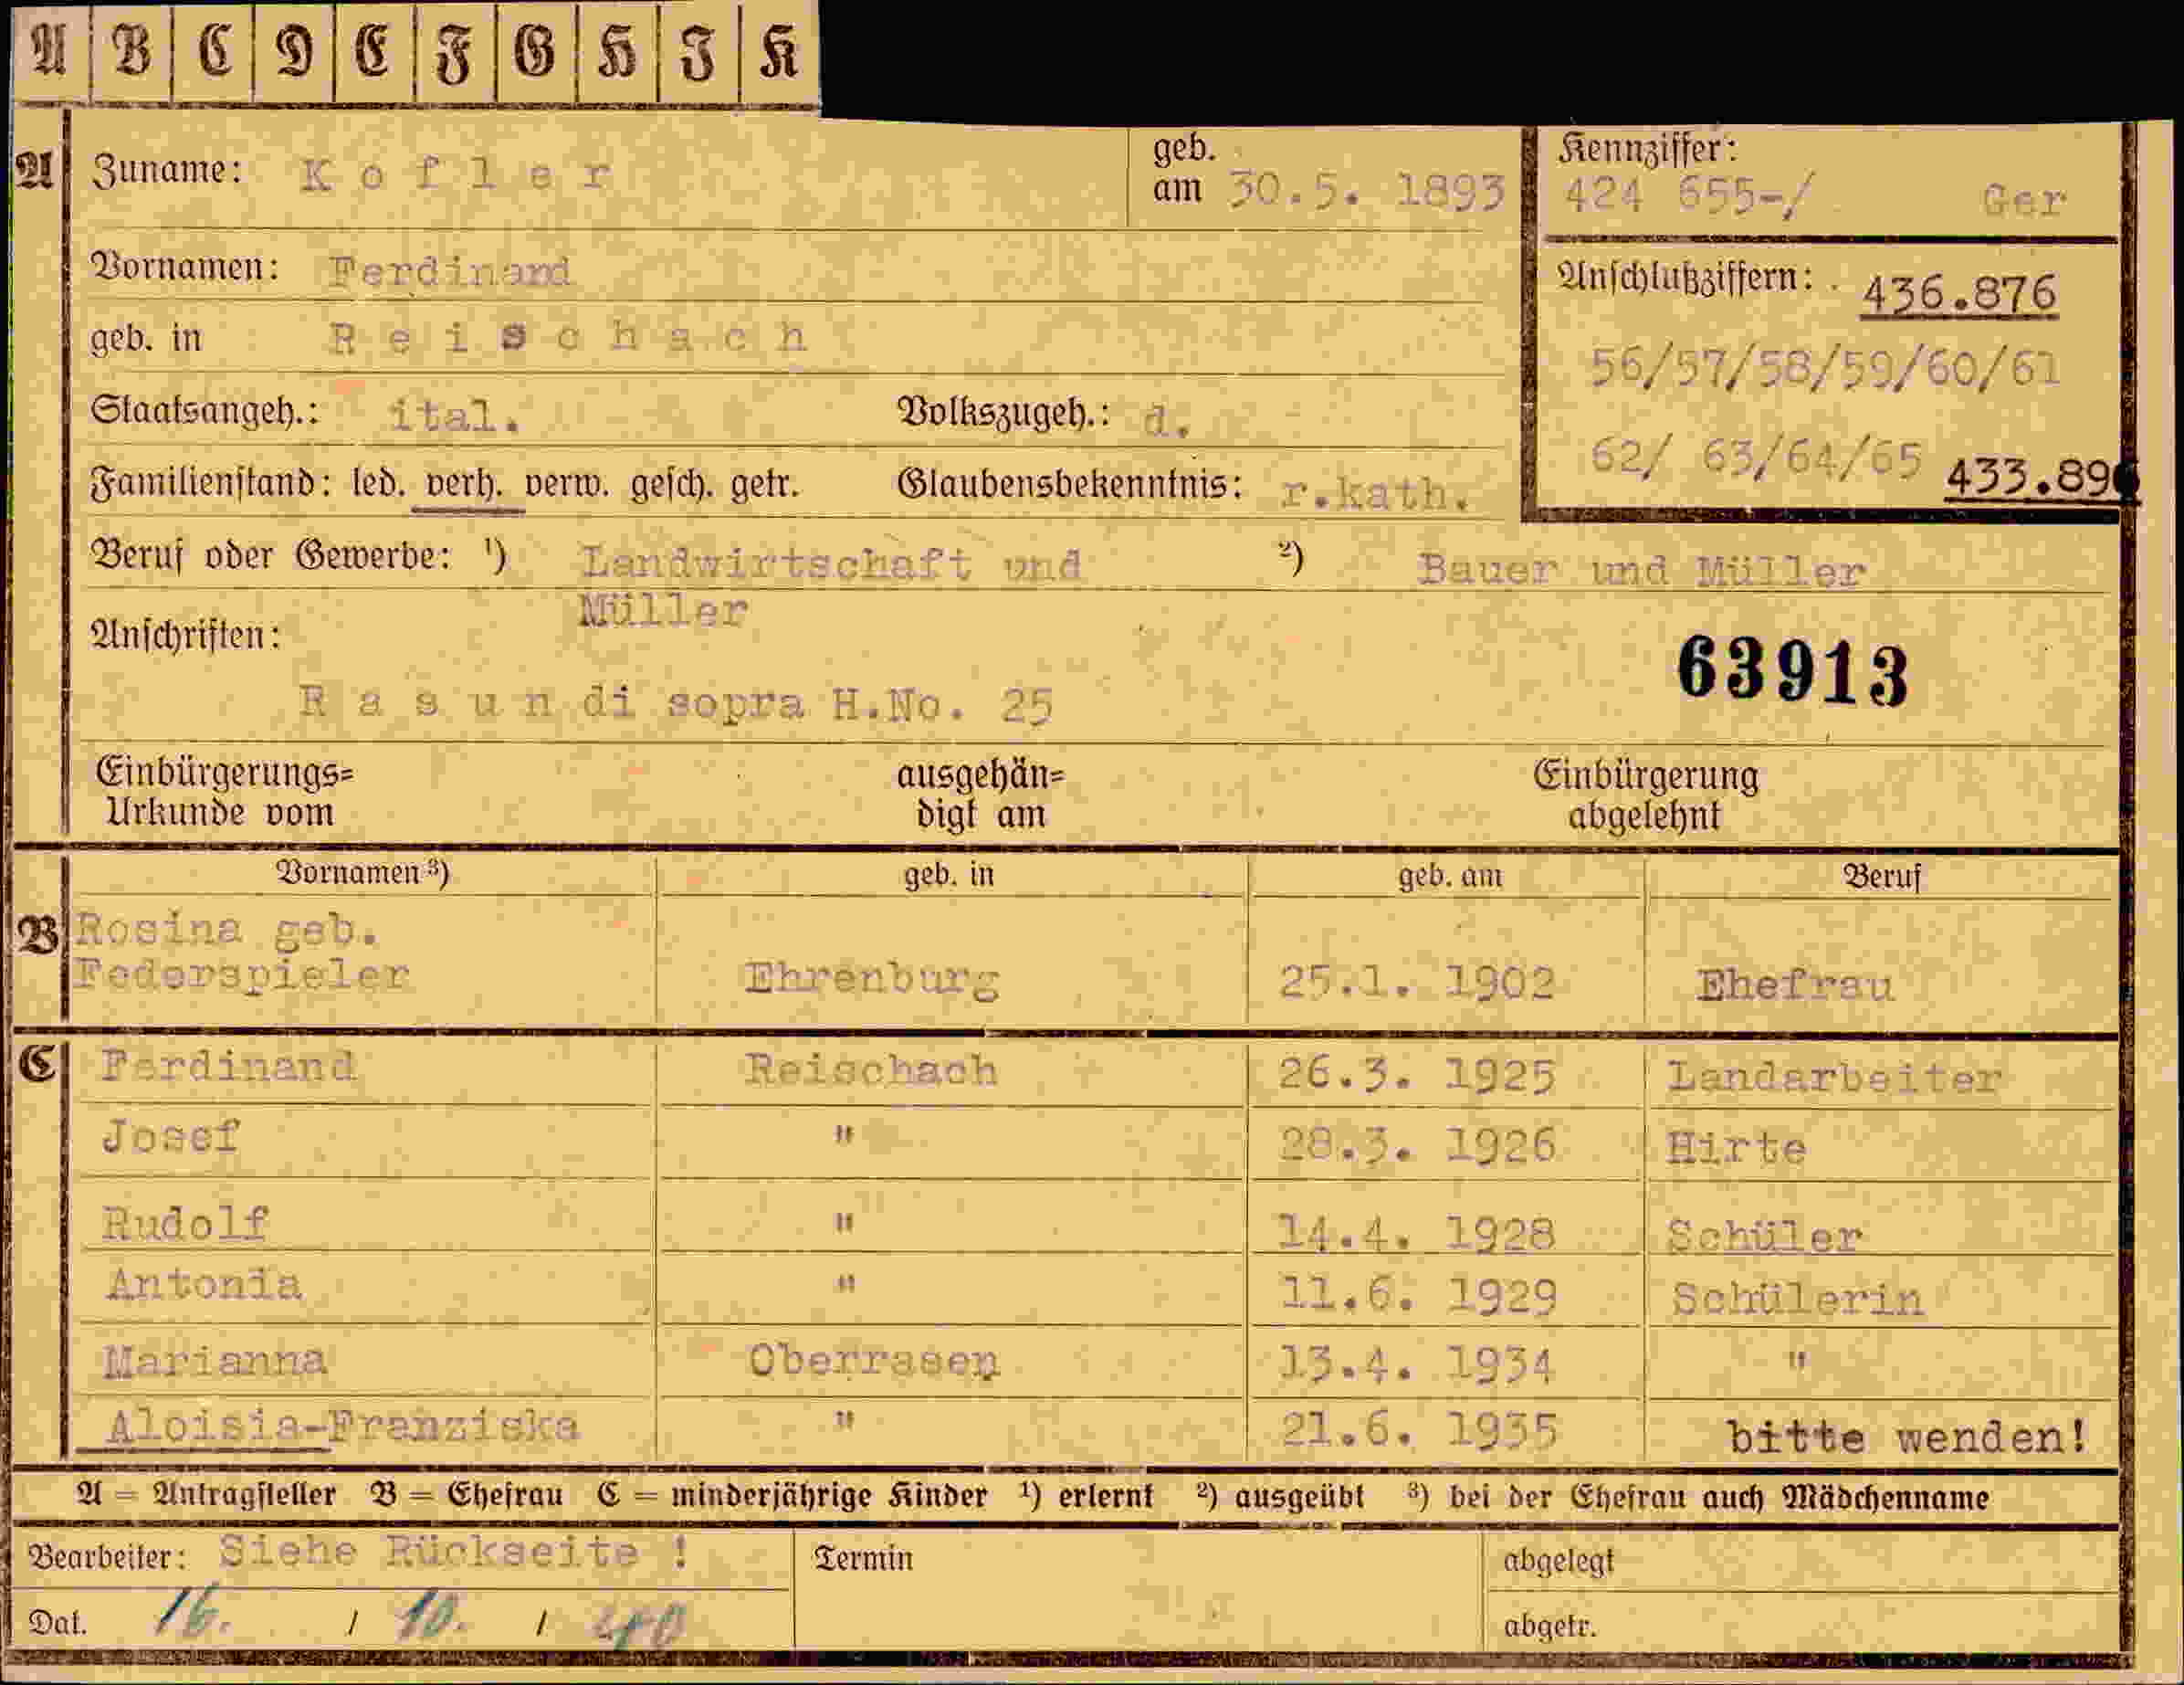 A B C D E F G H J K
A Zuname: Kofler geb. am 30.5. 1893
Kennziffer: 424 655-/ Ger
Vornamen: Ferdinand
Anschlußziffern: 436.876
geb. in Reischach
56/57/58/59/60/61
Staatsangeh.: ital. Volkszugeh.: d.
62/ 63/64/65 433.896
Familienstand: led. verh. verw. gesch. getr. Glaubensbekenntnis: r.kath.
Beruf oder Gewerbe: ¹) Landwirtschaft und ²) Bauer und Müller
Müller
Anschriften:
63913
Rasun di sopra H.No. 25
Einbürgerungs= ausgehän= Einbürgerung
Urkunde vom digt am abgelehnt
Vornamen ³) geb. in geb. am Beruf
B Rosina geb.
Federspieler Ehrenburg 25.1. 1902 Ehefrau
C Ferdinand Reischach 26.3. 1925 Landarbeiter
Josef " 28.3. 1926 Hirte
Rudolf " 14.4. 1928 Schüler
Antonia " 11.6. 1929 Schülerin
Marianna Oberrasen 13.4. 1934 "
Aloisia-Franziska " 21.6. 1935 bitte wenden!
A = Antragsteller B = Ehefrau C = minderjährige Kinder ¹) erlernt ²) ausgeübt ³) bei der Ehefrau auch Mädchenname
Bearbeiter: Siehe Rückseite ! Termin abgelegt
Dat. 16. / 10. / 40 abgetr.